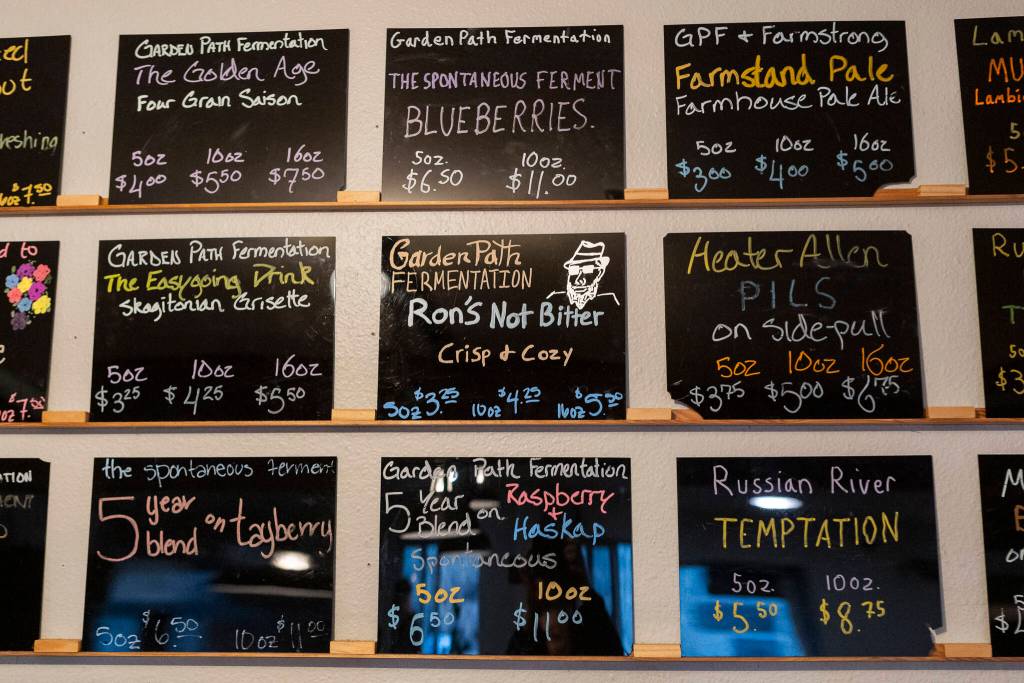 GARDEN PATH Fermentation
The Golden Age
Four Grain Saison
5oz 10oz 16oz
$4.00 $5.50 $7.50
Garden Path Fermentation
THE SPONTANEOUS FERMENT
BLUEBERRIES.
5oz. 10oz.
$6.50 $11.00
GPF & Farmstrong
Farmstand Pale
Farmhouse Pale Ale
5oz 10oz 16oz
$3.00 $4.00 $5.00
GARDEN PATH Fermentation
The Easygoing Drink
Skagitonian Grisette
5oz 10oz 16oz
$3.25 $4.25 $5.50
Garden Path
FERMENTATION
Ron's Not Bitter
Crisp & Cozy
5oz $3.25 10oz $4.25 16oz $5.50
Heater Allen
PILS
on side-pull
5oz 10oz 16oz
$3.75 $5.00 $6.75
the spontaneous ferment
5 year blend on tayberry
5oz $6.50 10oz $11.00
Garden Path Fermentation
5 Year Blend on Raspberry & Haskap
Spontaneous
5oz 10oz
$6.50 $11.00
Russian River
TEMPTATION
5oz. 10oz.
$5.50 $8.75